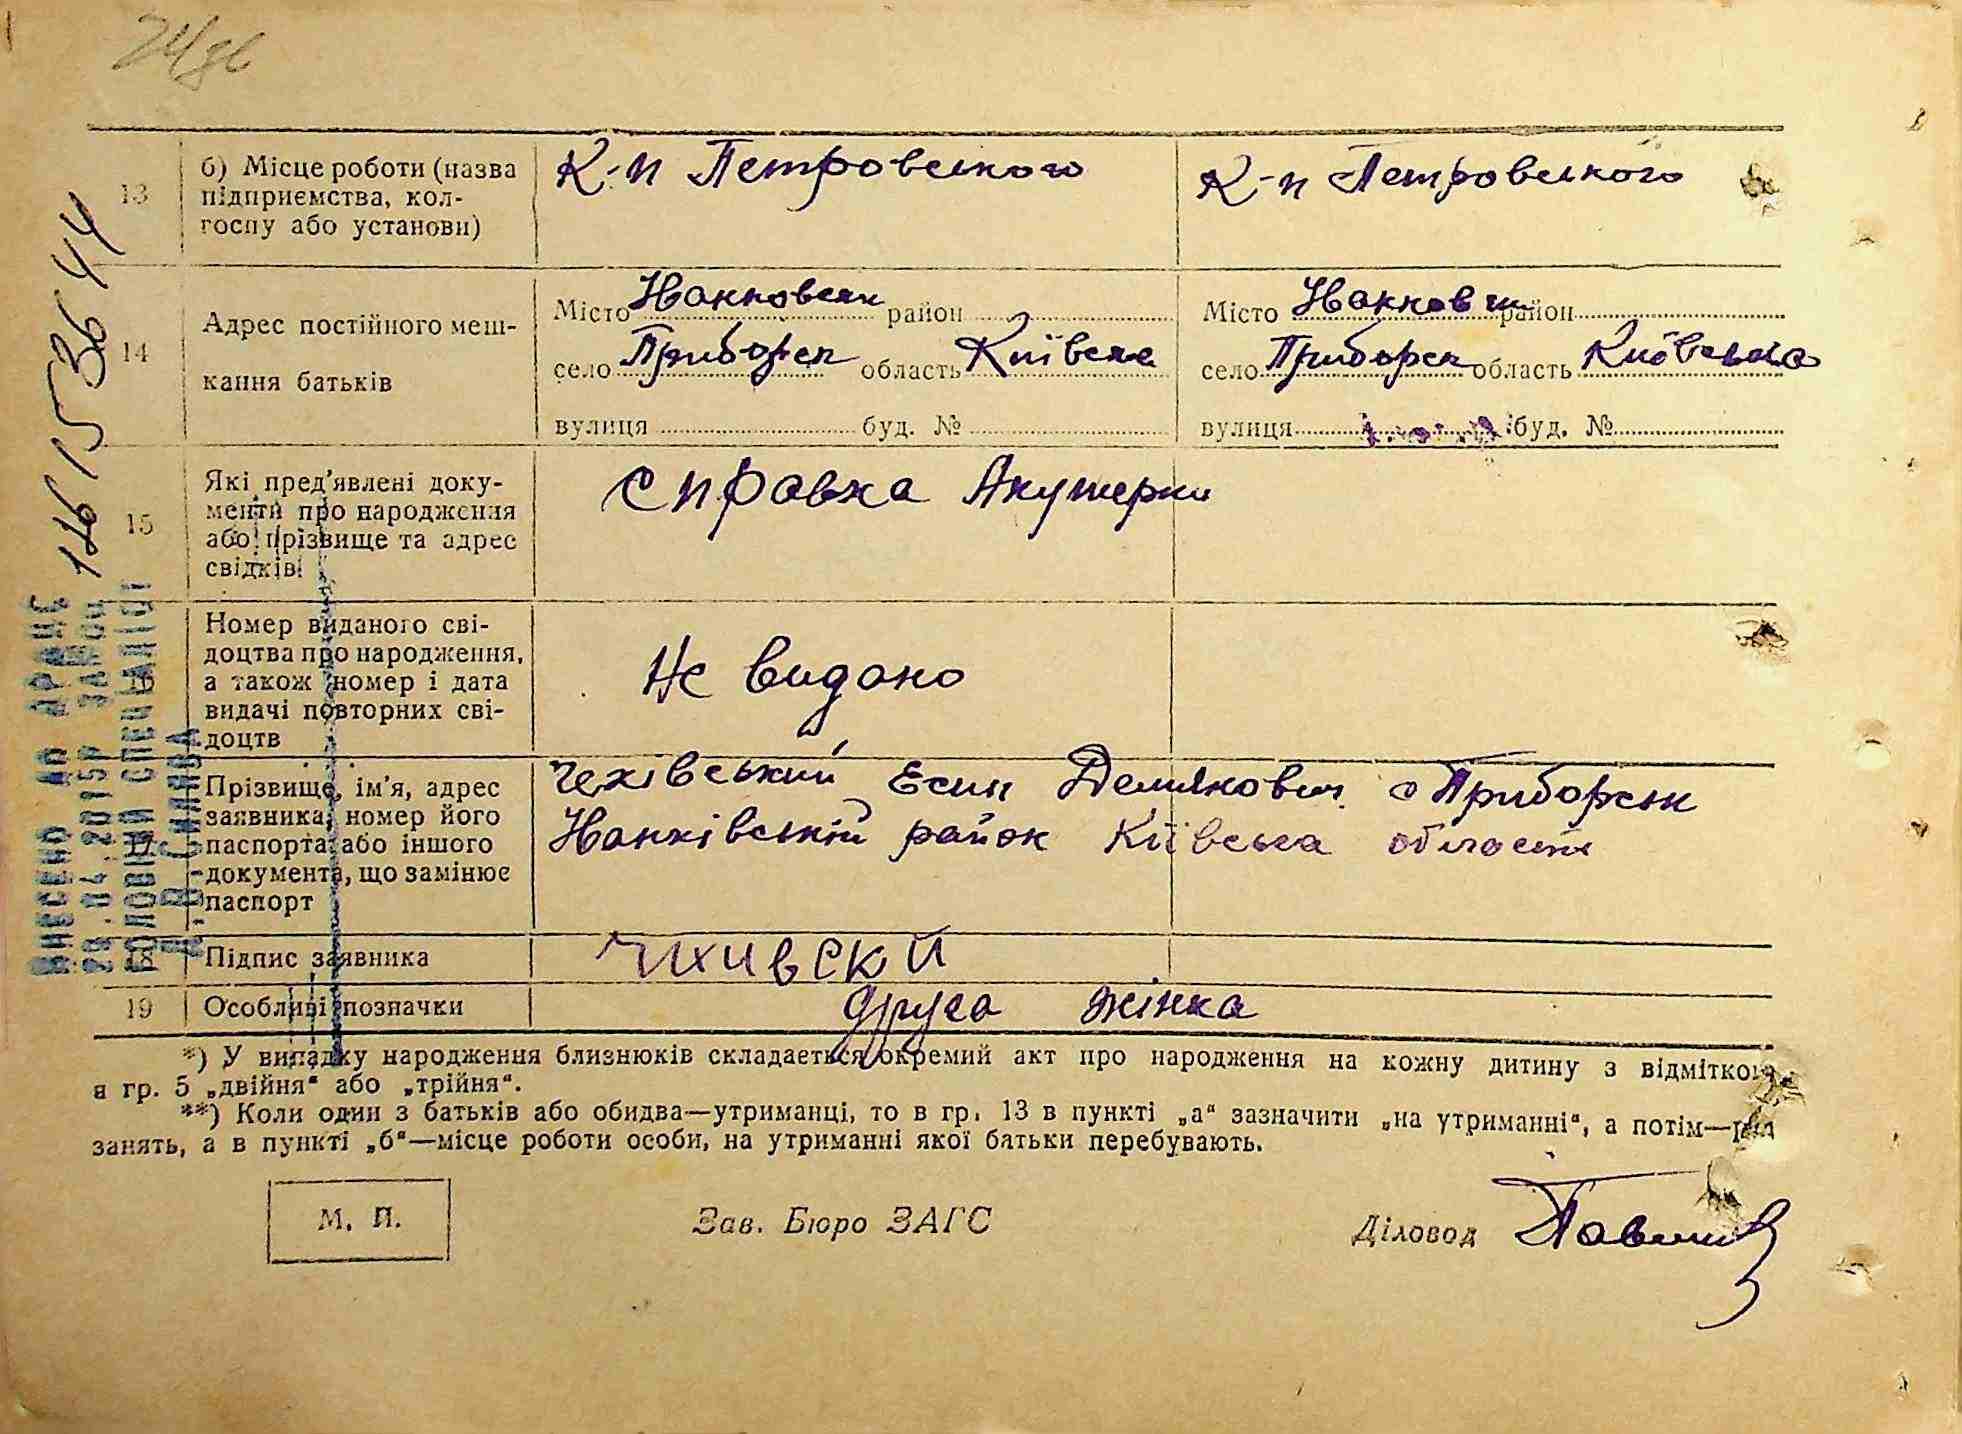 13
б) Місце роботи (назва
підприємства, кол-
госпу або установи)
К-п Петровського
К-п Петровського
14
Адрес постійного меш-
кання батьків
Місто Іванковськ район
село Приборск область Київська
вулиця буд. №
Місто Іванковськ район
село Приборск область Київська
вулиця буд. №
15
Які пред'явлені доку-
менти про народження
або прізвище та адрес
свідків
справка Акушерки
16
Номер виданого сві-
доцтва про народження,
а також номер і дата
видачі повторних сві-
доцтв
Не видано
17
Прізвище, ім'я, адрес
заявника, номер його
паспорта або іншого
документа, що замінює
паспорт
Чехівський Есип Демянович с Приборськ
Іванківській район Київська область
18
Підпис заявника
Чихивский
19
Особливі позначки
друга жінка
*) У випадку народження близнюків складається окремий акт про народження на кожну дитину з відміткою
в гр. 5 „двійня“ або „трійня“.
**) Коли один з батьків або обидва—утриманці, то в гр. 13 в пункті „а“ зазначити „на утриманні“, а потім—рід
занять, а в пункті „б“—місце роботи особи, на утриманні якої батьки перебувають.
М. П.
Зав. Бюро ЗАГС
Діловод
ВНЕСЕНО ДО ДРАЦС
28.04.2015Р
ГОЛОВНИЙ СПЕЦІАЛІСТ
116153644